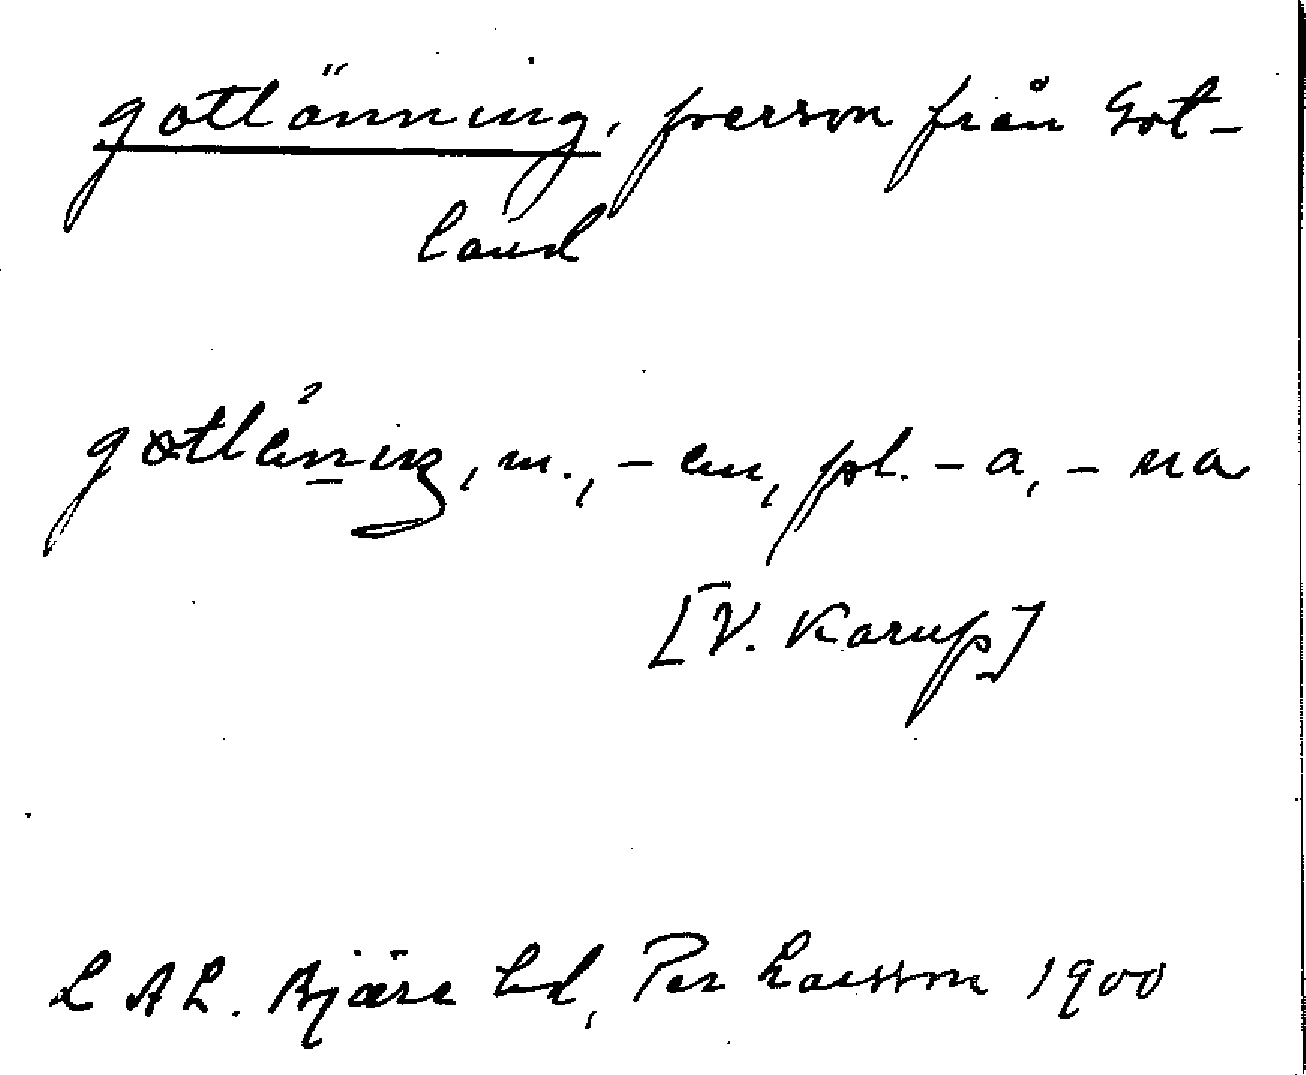 gotlänning, person från Got-
land
gotläniŋ, m., -en, pl. -a, -na
[V. Karup]
LAL. Bjäre hd, Per Larsson 1900